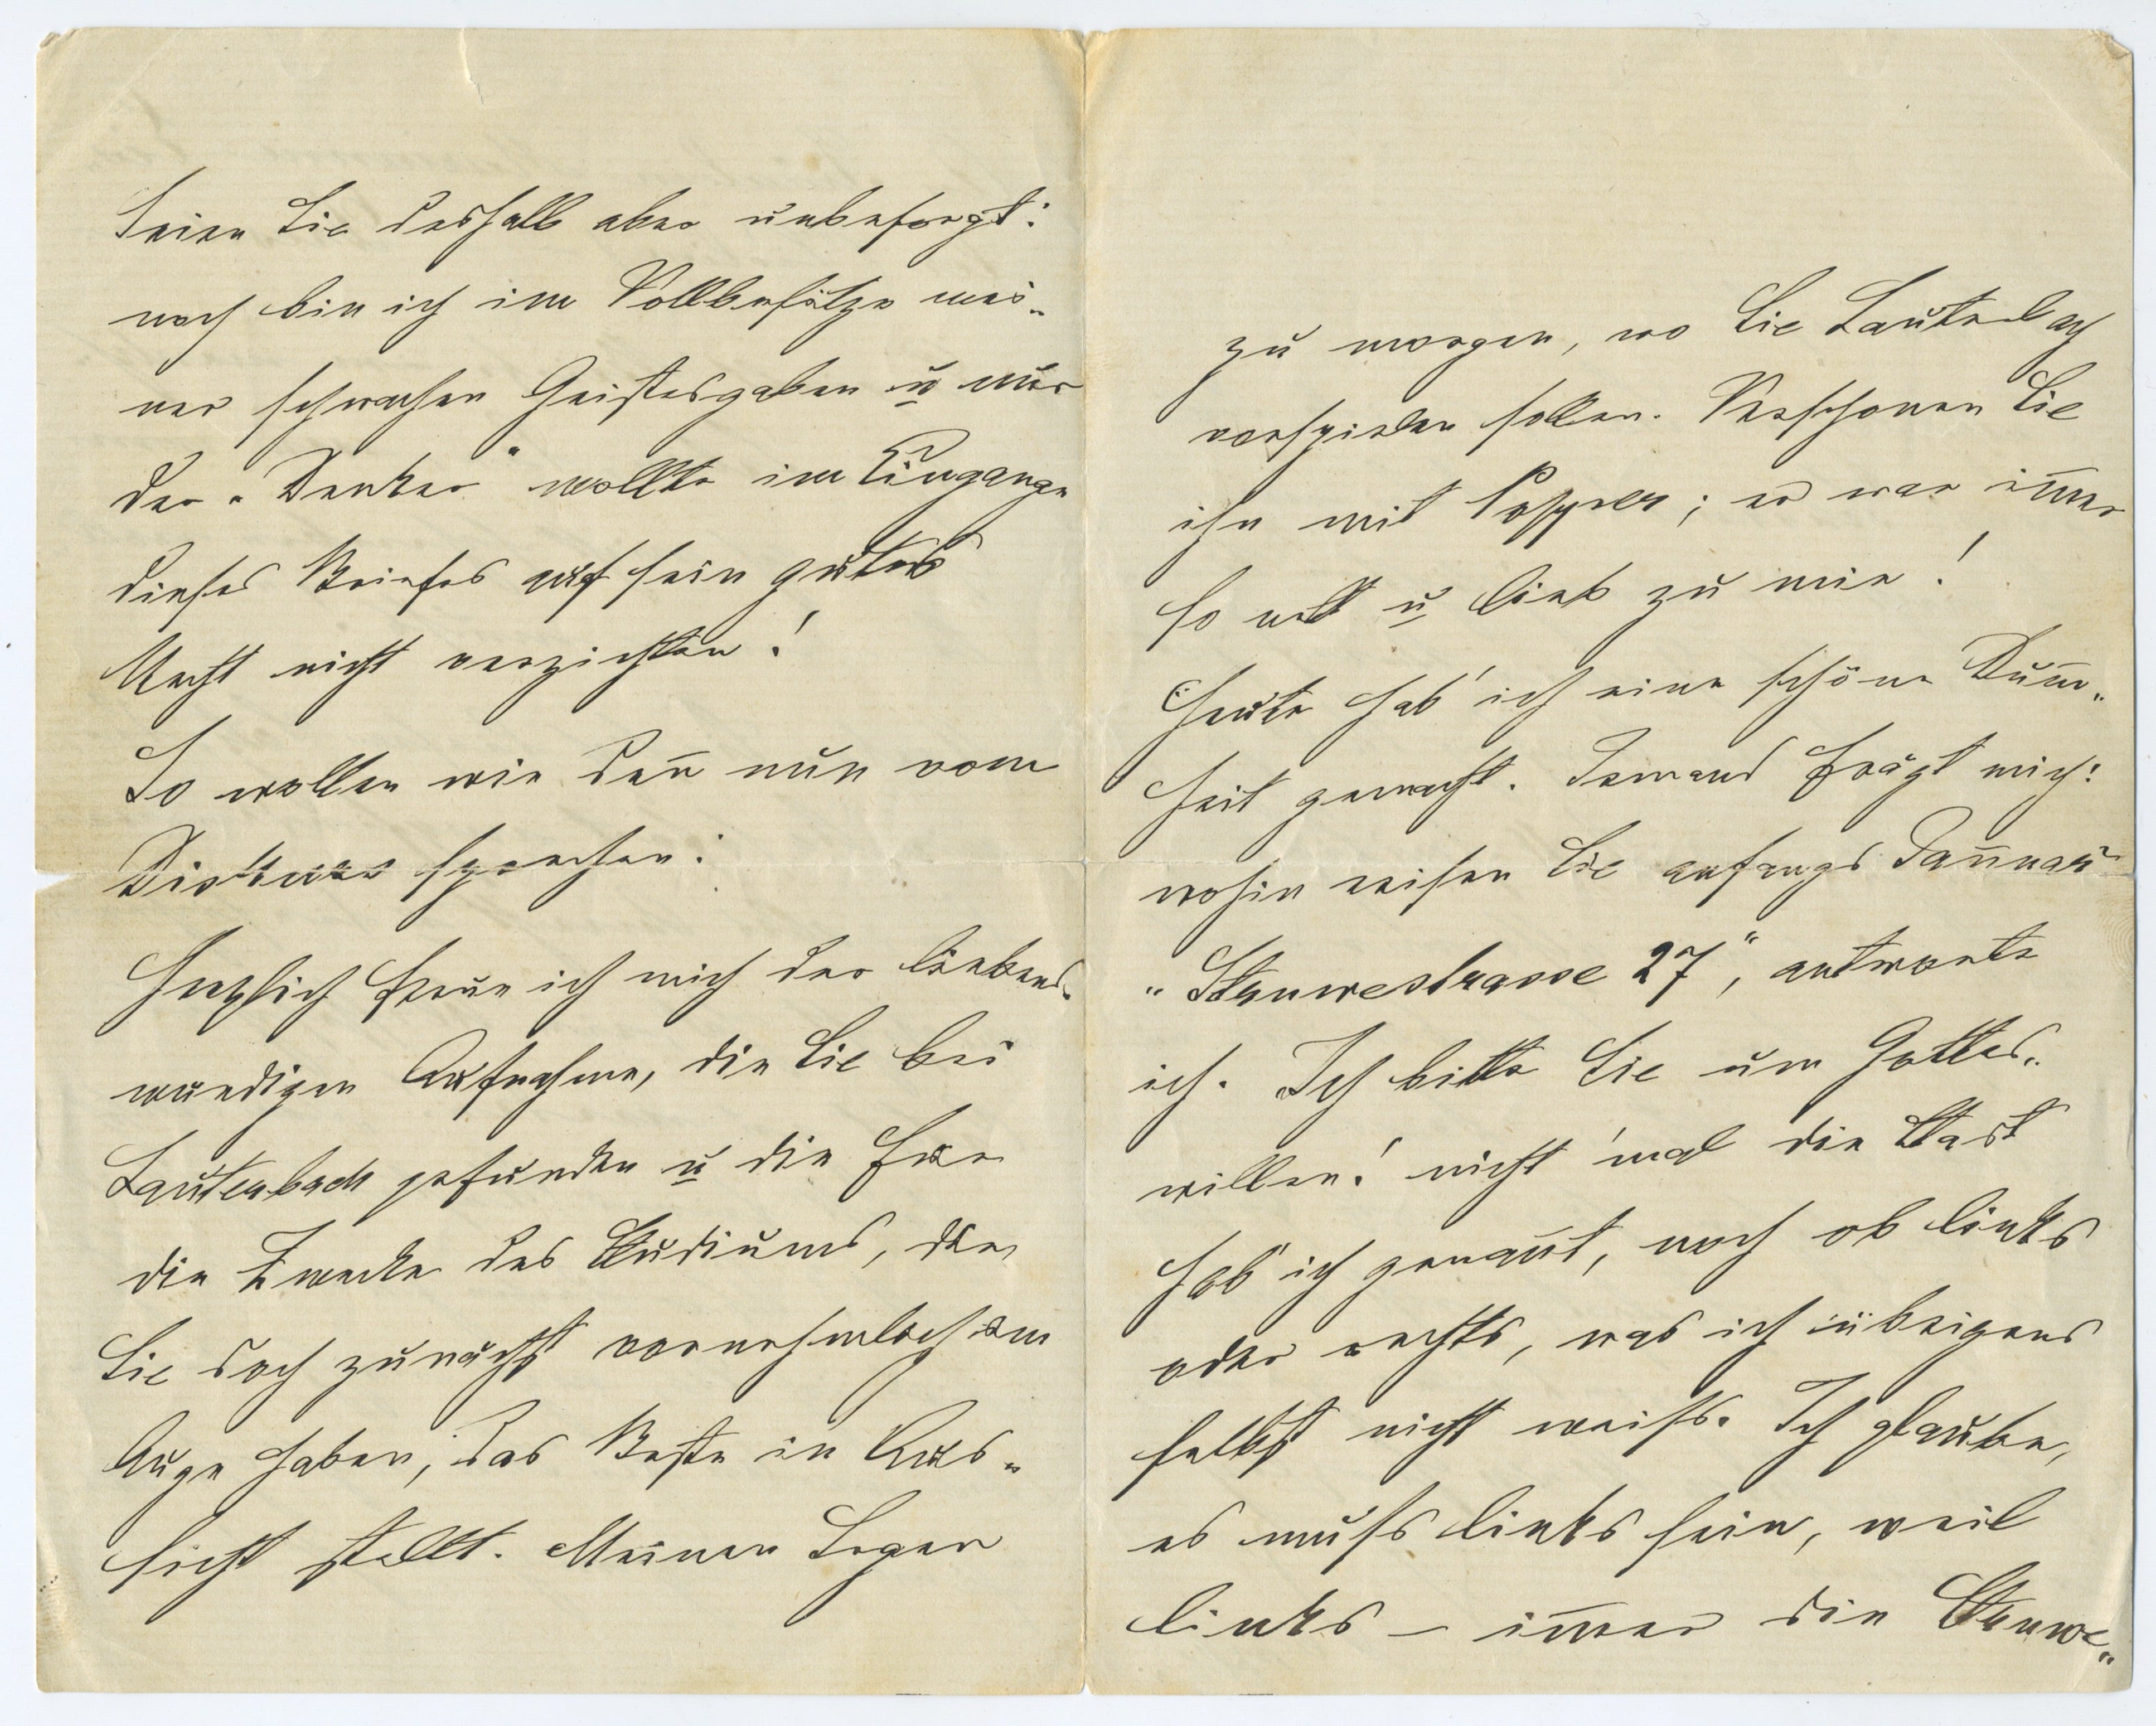 Seien Sie deshalb aber unbesorgt:
noch bin ich im Vollbesitze mei-
ner schwachen Geistesgaben u nur
der „Denker“ wollte im Eingange
dieses Briefes auf sein gutes
Recht nicht verzichten!
So wollen wir den̄ nun vom
sprechen:
Herzlich freue ich mich der liebens-
würdigen Aufnahme, die Sie bei
Lauterbach gefunden u die für
die Zwecke des Studiums, die
Sie doch zunächst vornehmlich im
Auge haben, das Beste in Aus-
sicht stellt. Meinen Segen
zu morgen, wo Sie Lauterbach
vorspielen sollen. Verschonen Sie
ihn mit Popper; er war im̄er
so nett u lieb zu mir!
Heute hab' ich eine schöne Dum̄-
heit gemacht. Jemand frägt mich:
wohin reisen Sie anfangs Jan̄uar
„Struwestrasse 27“, antworte
ich. Ich bitte Sie um Gottes-
willen! nicht 'mal die Stadt
hab' ich genan̄t, noch ob links
oder rechts, was ich übrigens
selbst nicht weiss. Ich glaube,
es muss links sein, weil
links – im̄er die Struwe-